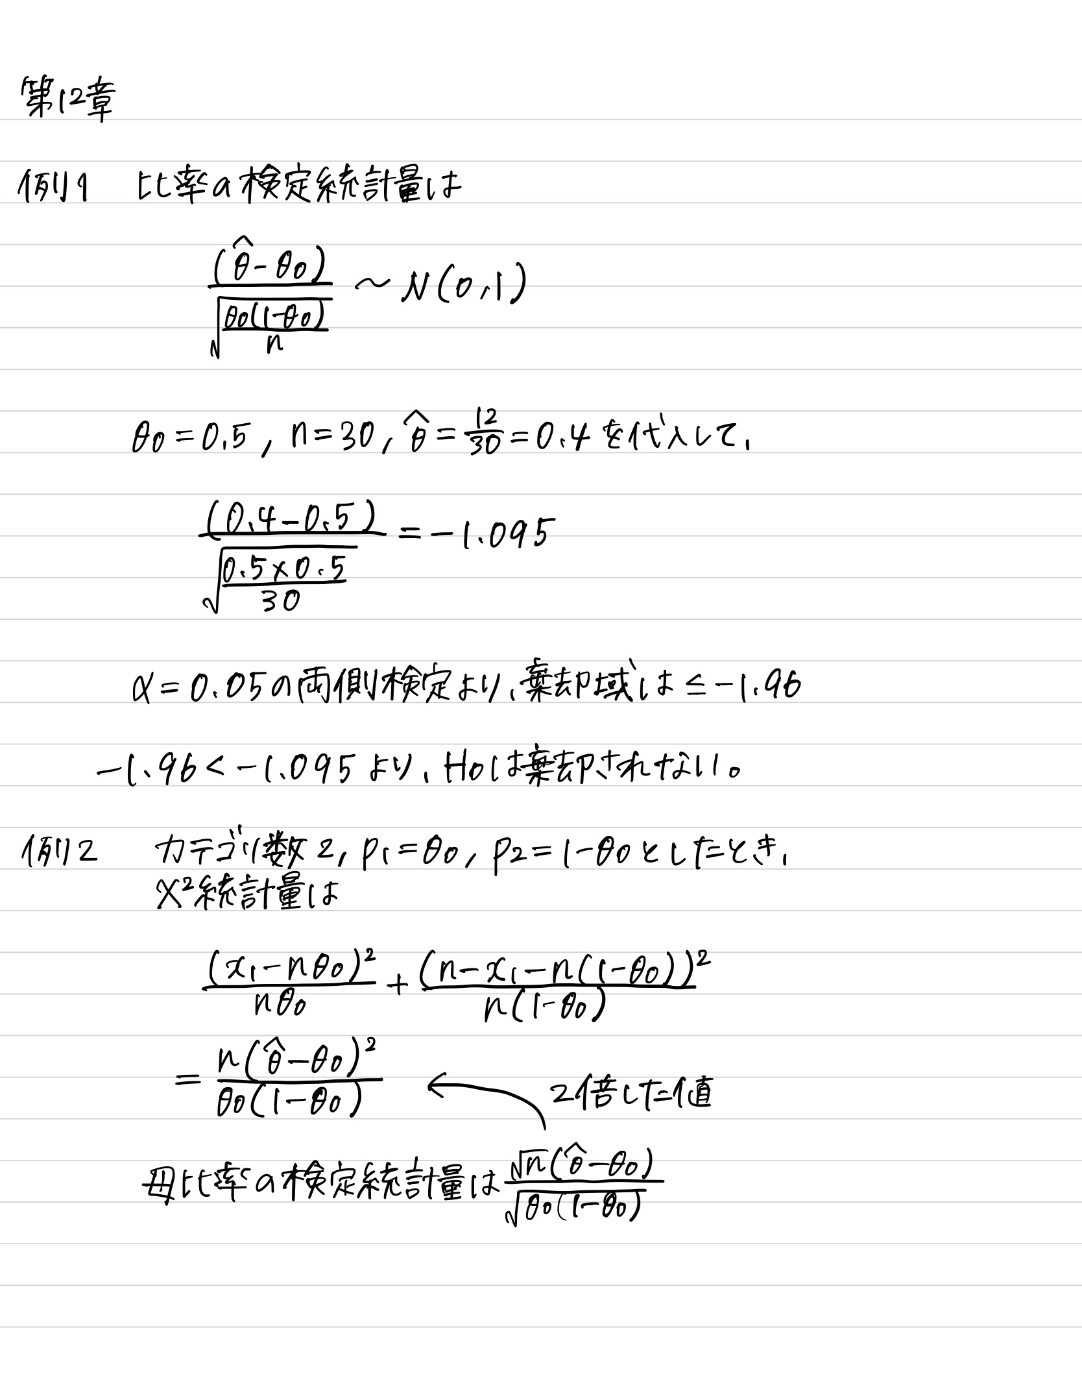 第12章
例1 比率の検定統計量は
(θ̂-θ0)/√(θ0(1-θ0)/n) ~ N(0,1)
θ0=0.5, n=30, θ̂=12/30=0.4を代入して、
(0.4-0.5)/√(0.5×0.5/30) = -1.095
α=0.05の両側検定より、棄却域は≤-1.96
-1.96<-1.095より、H0は棄却されない。
例2 カテゴリ数2, p1=θ0, p2=1-θ0としたとき、
χ²統計量は
(x1-nθ0)²/nθ0 + (n-x1-n(1-θ0))²/n(1-θ0)
= n(θ̂-θ0)²/θ0(1-θ0) ← 2倍した値
母比率の検定統計量は √n(θ̂-θ0)/√θ0(1-θ0)